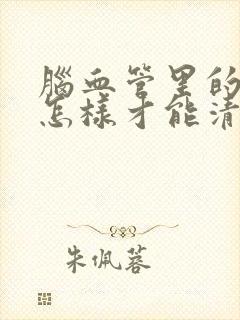 腦血管里的
怎樣才能清
朱佩蓉